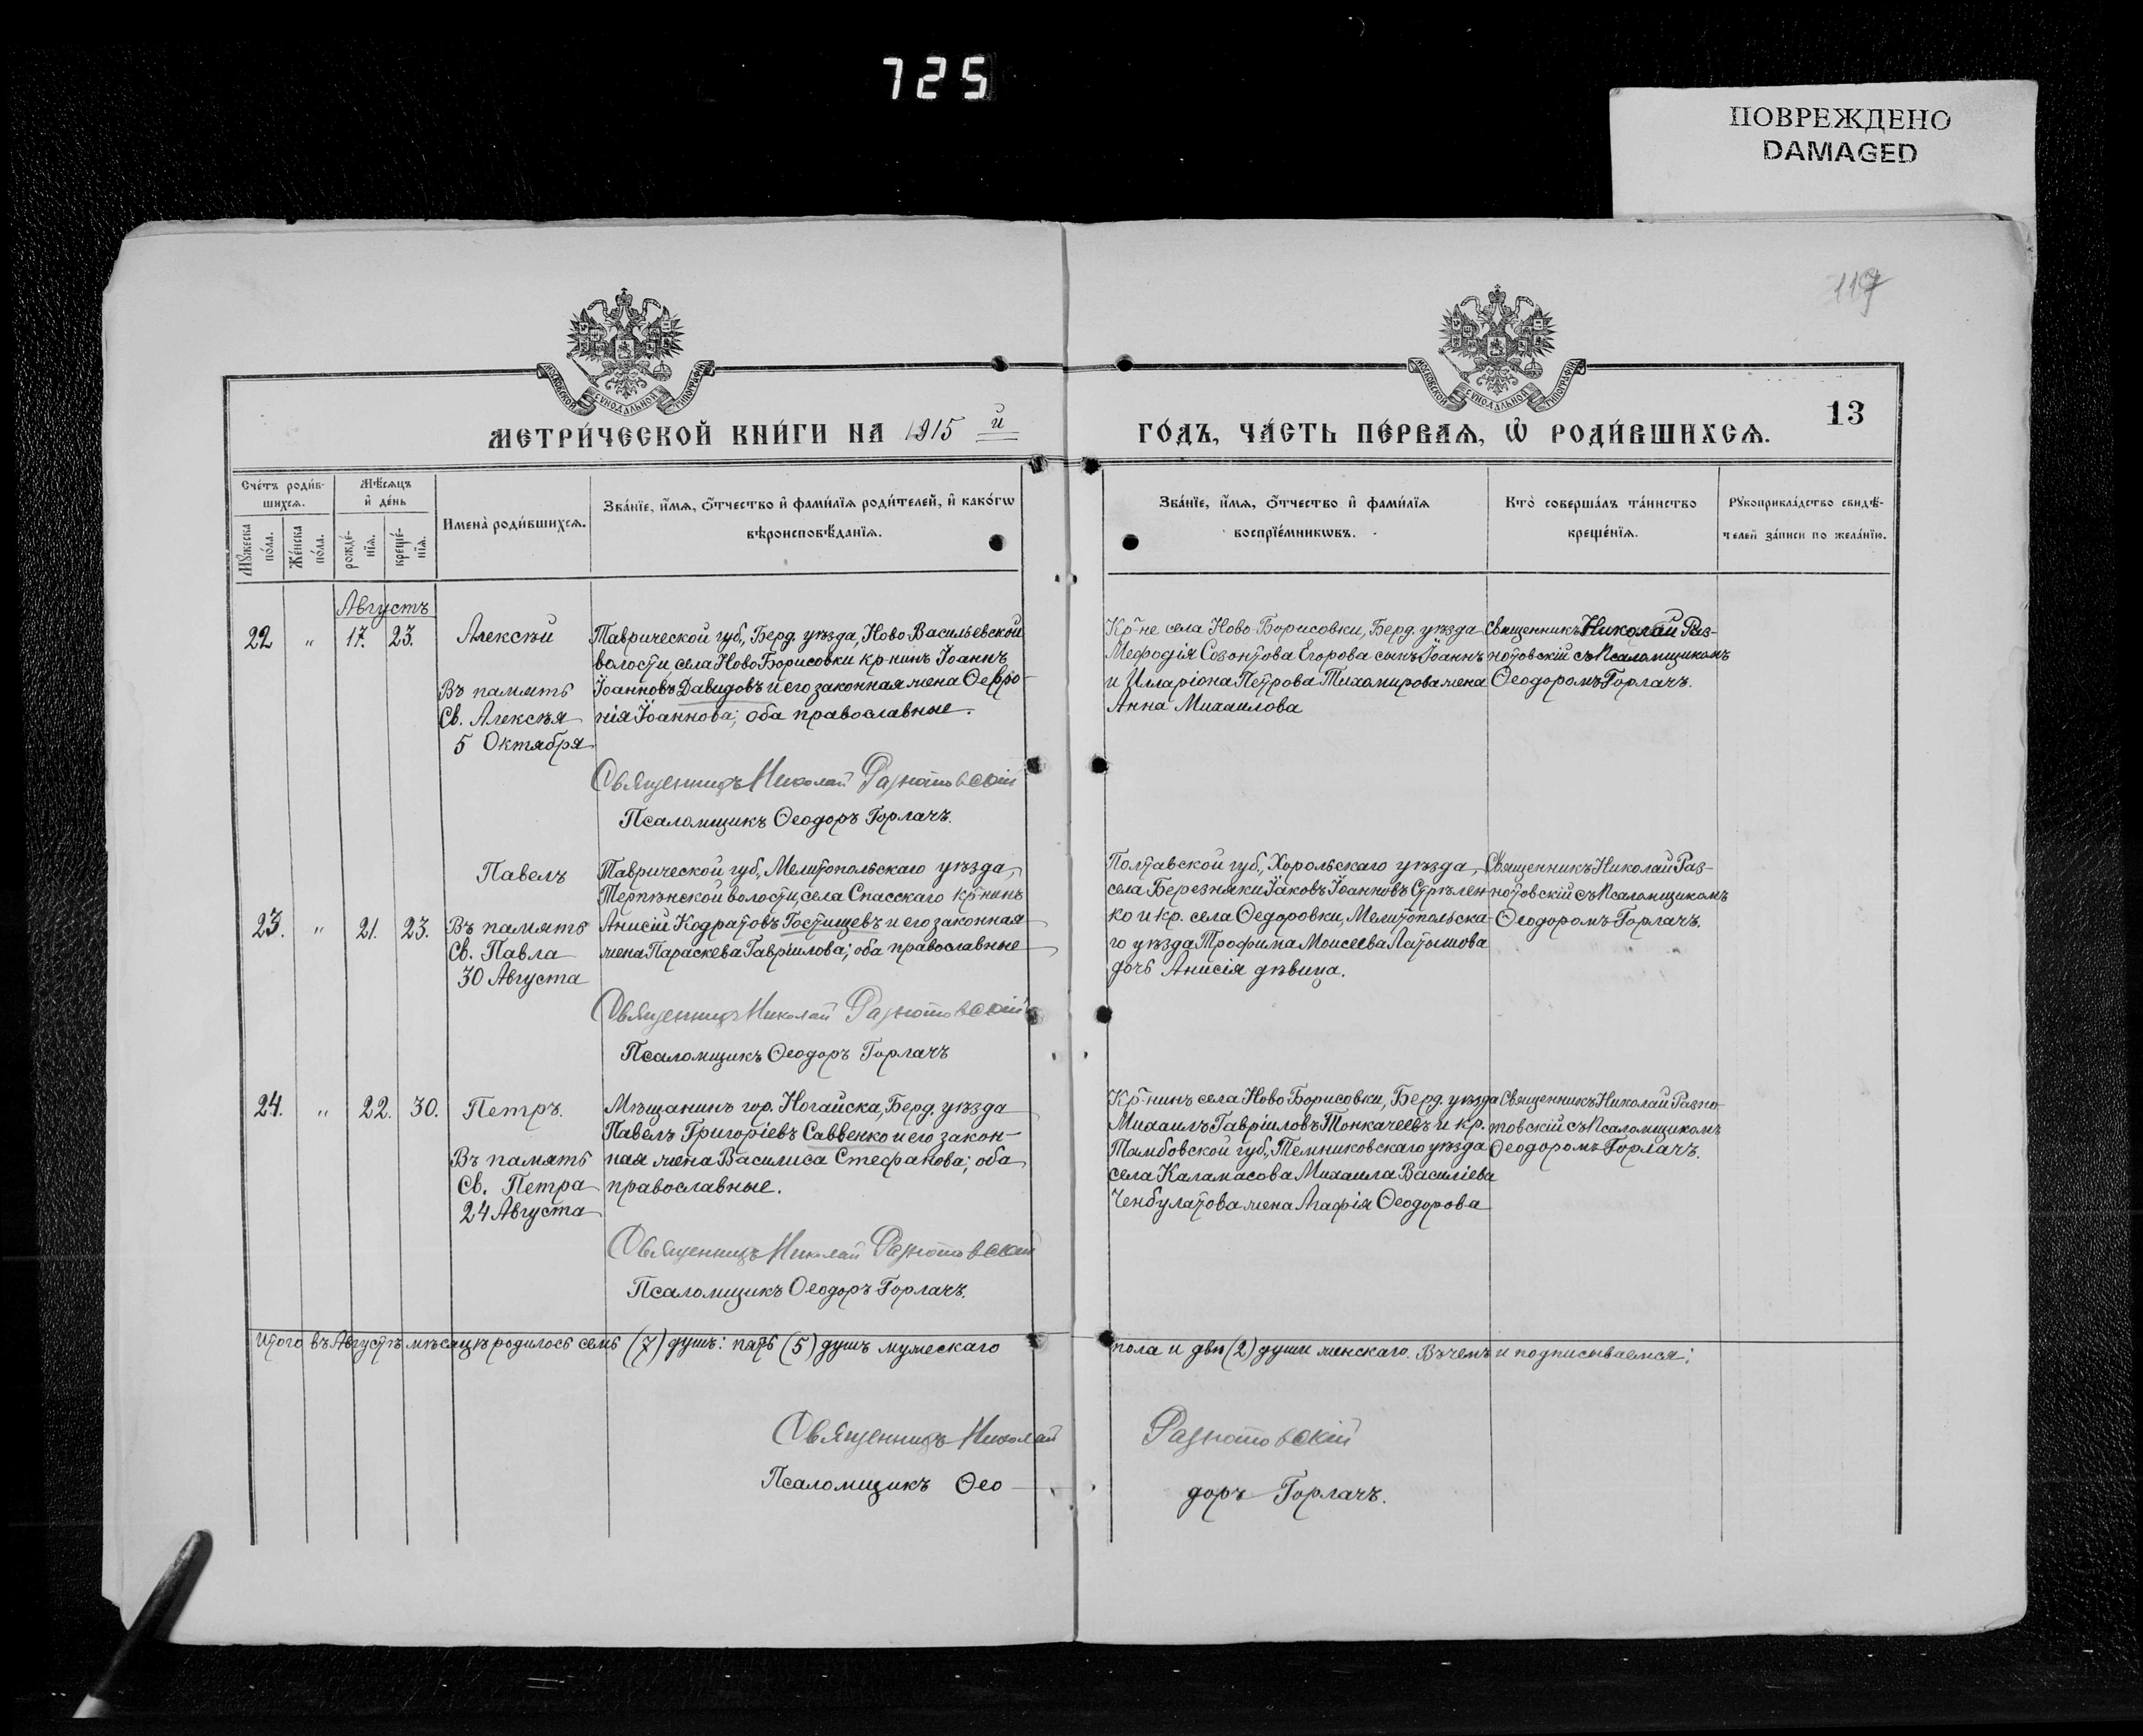 725
ПОВРЕЖДЕНО
DAMAGED
МОСКОВСКОЙ СѴНОДАЛЬНОЙ ТИПОГРАФІИ
МОСКОВСКОЙ СѴНОДАЛЬНОЙ ТИПОГРАФІИ
МЕТРИ́ЧЕСКОЙ КНИ́ГИ НА 1915 й
ГО́ДЪ, ЧА́СТЬ ПЕ́РВАѦ, Ѡ҆ РОДИ́ВШИХСѦ.
13
Сче́тъ роди́в-
шихсѧ.
Мꙋ́жеска по́ла.
Же́нска по́ла.
Мѣ́сѧцъ
и҆ де́нь
рожде́-
нїѧ.
креще́-
нїѧ.
Имена̀ роди́вшихсѧ.
Зва́нїе, и҆́мѧ, о҆́тчество и҆ фами́лїѧ роди́телей, и҆ како́гѡ
вѣроисповѣ́данїѧ.
Зва́нїе, и҆́мѧ, о҆́тчество и҆ фами́лїѧ
воспрїе́мникѡвъ.
Кто̀ соверша́лъ та́инство
креще́нїѧ.
Рꙋкоприкла́дство свидѣ́-
телей за́писи по жела́нїю.
Августъ
22 " 17. 23. Алексѣй
Въ память
Св. Алексѣя
5 Октября
Таврической губ., Берд. уѣзда, Ново-Васильевской
волости села НовоБорисовки кр-нинъ Іоаннъ
Іоанновъ Давидовъ и его законная жена Ѳевро-
нія Іоаннова; оба православные.
Священникъ Николай Разнотовскій
Псаломщикъ Ѳеодоръ Горлачъ.
Кр-не села Ново-Борисовки, Берд. уѣзда
Меѳодія Созонтова Егорова сынъ Іоаннъ
и Иларіона Петрова Тихомирова жена
Анна Михаилова
Священникъ Николай Раз-
нотовскій съ Псаломщикомъ
Ѳеодоромъ Горлачъ.
23. " 21. 23. Павелъ
Въ память
Св. Павла
30 Августа
Таврической губ., Мелитопольскаго уѣзда,
Терпѣнской волости, села Спасскаго кр-нинъ
Анисій Кодратовъ Гостищевъ и его законная
жена Параскева Гавріилова; оба православные
Священникъ Николай Разнотовскій
Псаломщикъ Ѳеодоръ Горлачъ
Полтавской губ., Хорольскаго уѣзда,
села Березняки Іаковъ Іоанновъ Стрѣлен-
ко и кр. села Ѳедоровки, Мелитопольска-
го уѣзда Трофима Моисеева Латышова
дочь Анисія дѣвица.
Священникъ Николай Раз-
нотовскій съ Псаломщикомъ
Ѳеодоромъ Горлачъ.
24. " 22. 30. Петръ.
Въ память
Св. Петра
24 Августа
Мѣщанинъ гор. Ногайска, Берд. уѣзда
Павелъ Григоріевъ Саввенко и его закон-
ная жена Василиса Стефанова; оба
православные.
Священникъ Николай Разнотовскій
Псаломщикъ Ѳеодоръ Горлачъ.
Кр-нинъ села Ново Борисовки, Берд. уѣзда
Михаилъ Гавріиловъ Тонкачеевъ и кр.
Тамбовской губ., Темниковскаго уѣзда
села Каламасова Михаила Василіева
Ченбулатова жена Агафія Ѳеодорова
Священникъ Николай Разно-
товскій съ Псаломщикомъ
Ѳеодоромъ Горлачъ.
Итого въ Августѣ мѣсяцѣ родилось семь (7) душъ: пять (5) душъ мужескаго
пола и двѣ (2) души женскаго. Въ чемъ и подписываемся:
Священникъ Николай Разнотовскій
Псаломщикъ Ѳео-
доръ Горлачъ.